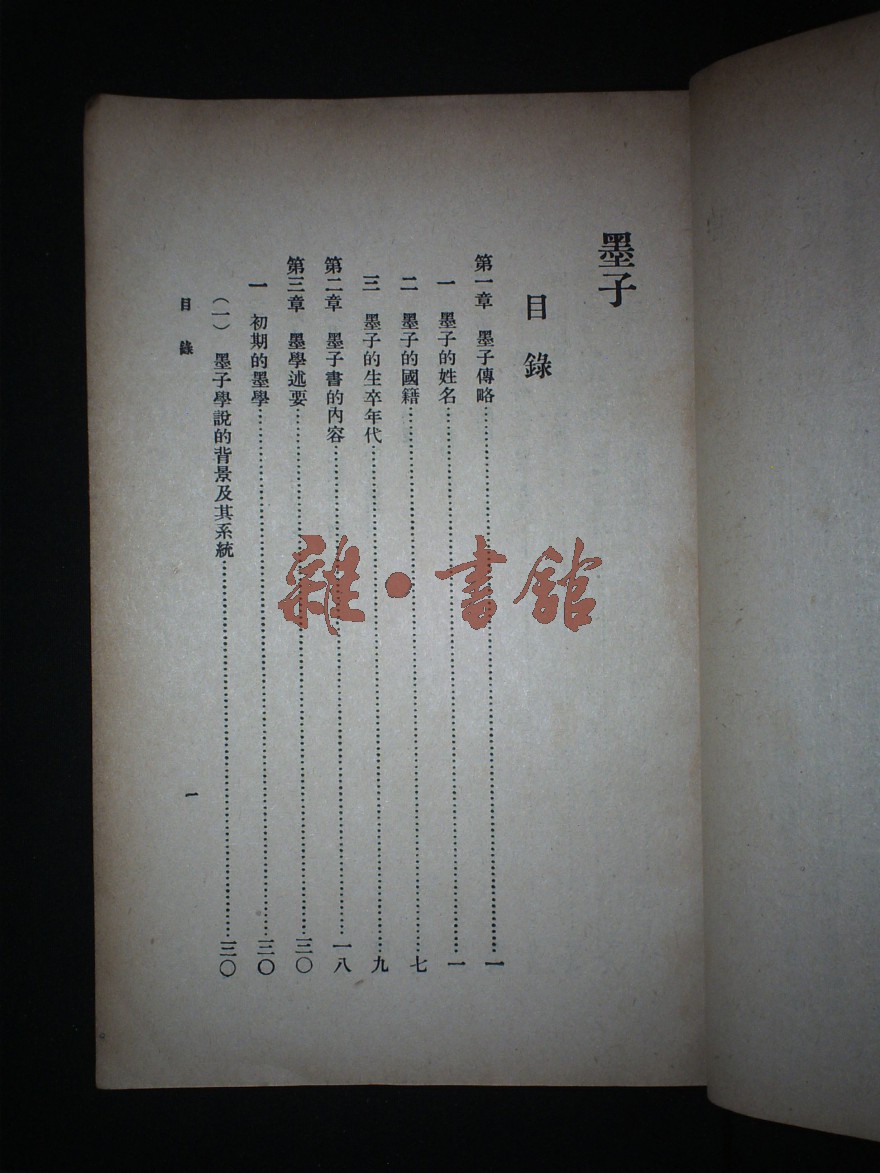 墨子
目錄
第一章　墨子傳略……一
一　墨子的姓名……一
二　墨子的國籍……七
三　墨子的生卒年代……九
第二章　墨子書的內容……一八
第三章　墨學述要……三〇
一　初期的墨學……三〇
(一)　墨子學說的背景及其系統……三〇
目錄
一
雜·書館